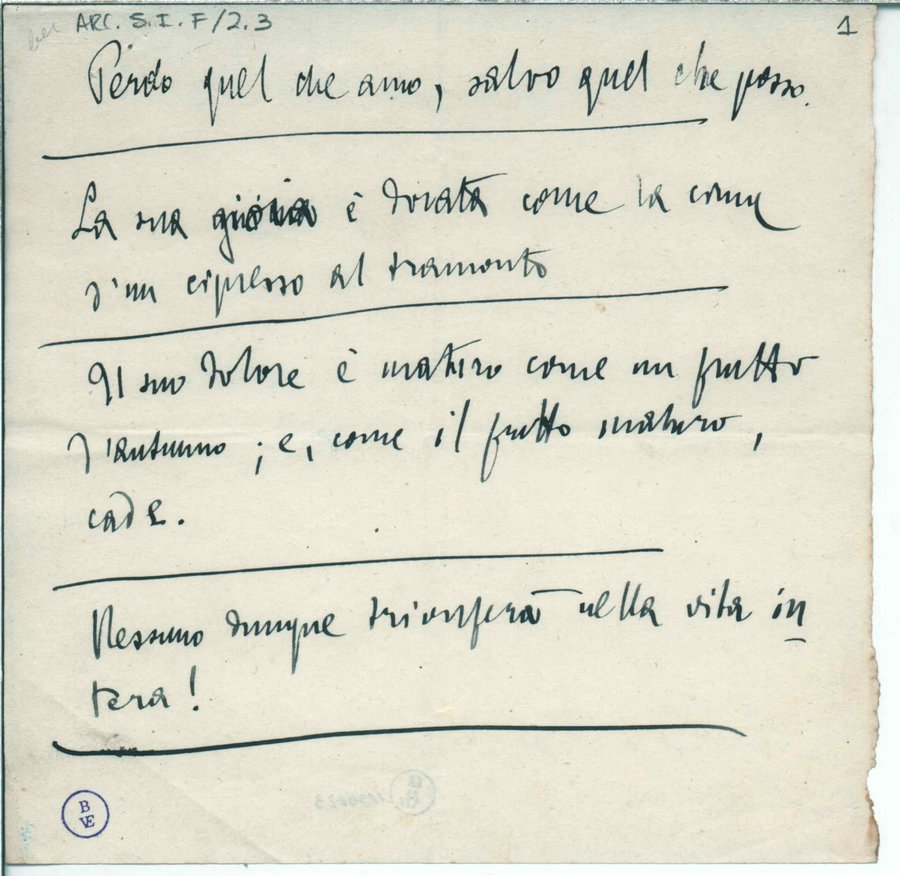 ARC. S. I. F/2.3
1
Perdo quel che amo, salvo quel che posso.
La sua gioia è dorata come la cima
d'un cipresso al tramonto
Il suo dolore è maturo come un frutto
d'autunno ; e, come il frutto maturo,
cade.
Nessuno dunque trionferà nella vita in
tera!
B
VE